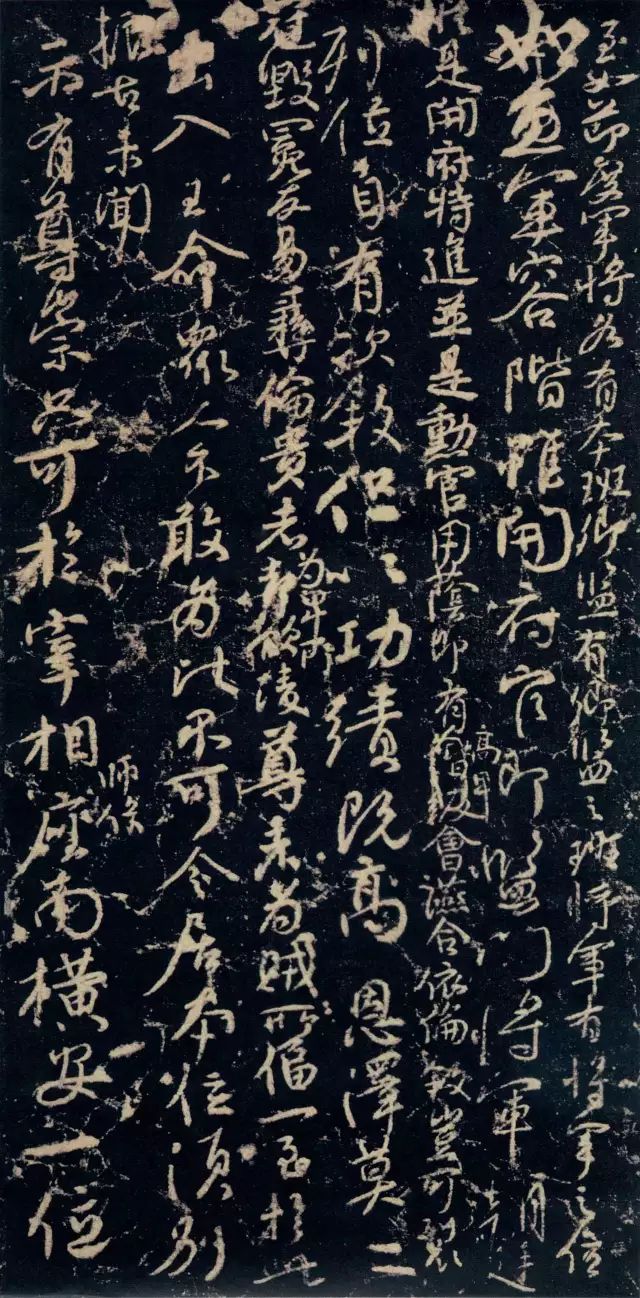 至如節度軍將各有本班卿監有卿監之班將軍有將軍之位
如魚軍容階雖開府官即監門將軍朝廷
縱是開府特進並是勳官用蔭即有高卑會讌合依倫敘豈可裂
列位自有次敘但以功績既高恩澤莫二
冠毀冕反易彝倫貴者為卑所凌尊者為賊所偪一至於此
出入王命眾人不敢為比不可令居本位須別
振古未聞
示有尊崇只可於宰相師保座南橫安一位